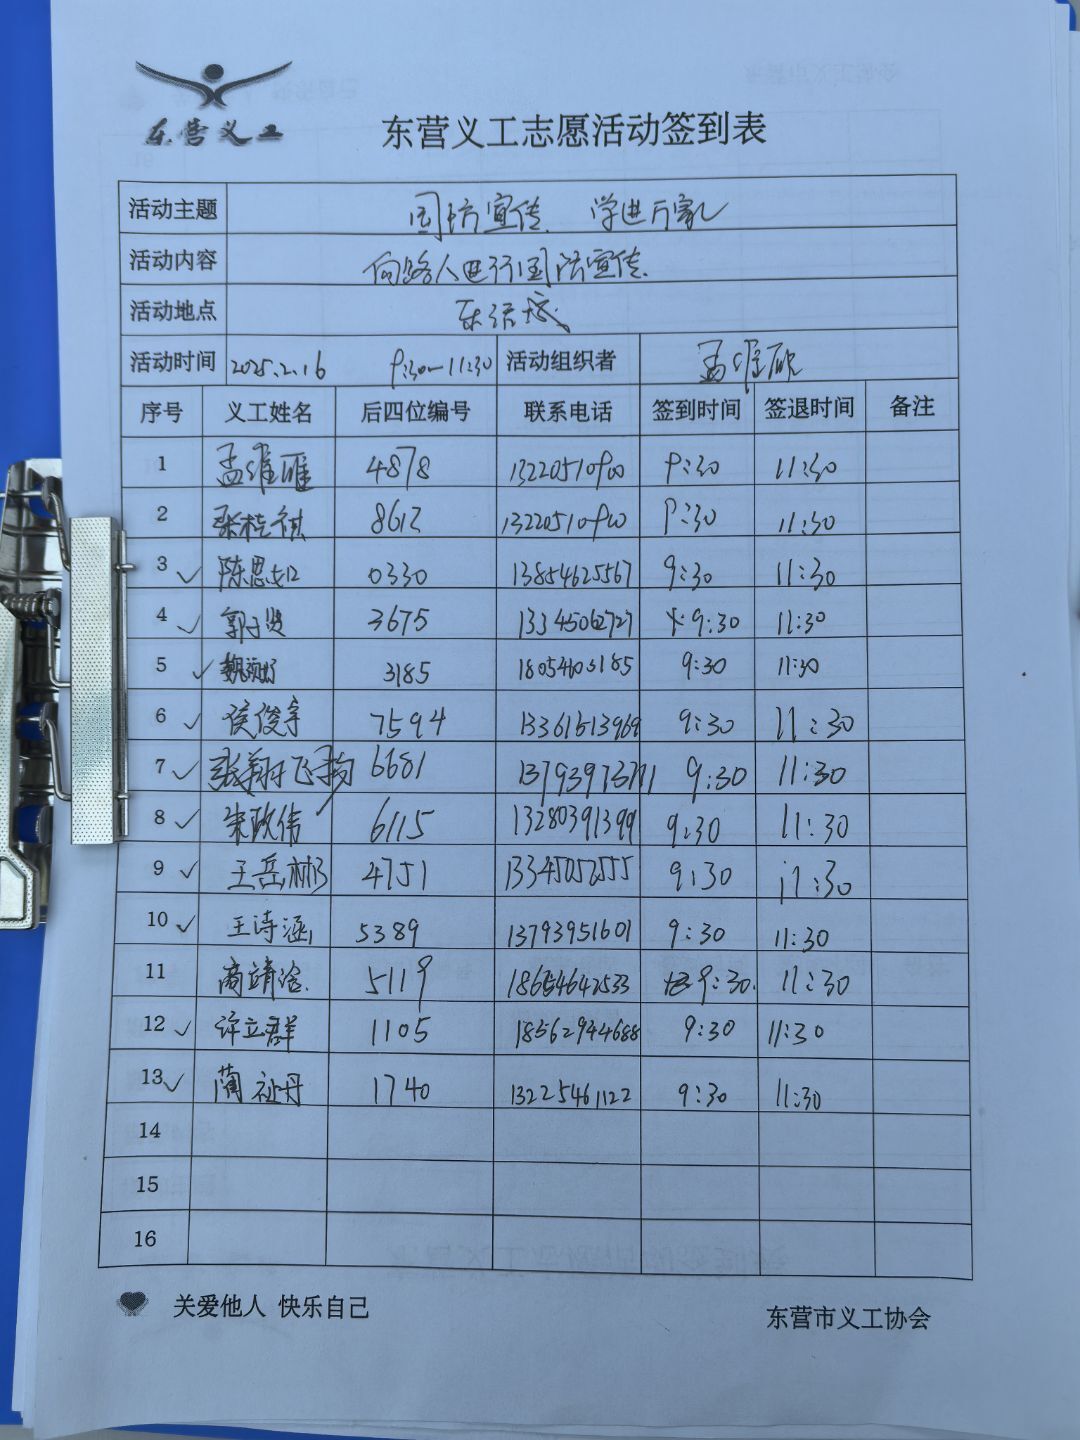 东营义工
东营义工志愿活动签到表
活动主题 国防宣传、学进万家
活动内容 向路人进行国防宣传
活动地点
活动时间 2025.2.16 9:30-11:30 活动组织者 孟维
序号 义工姓名 后四位编号 联系电话 签到时间 签退时间 备注
1 孟维 4878 13220510900 9:30 11:30
2 张桂祺 8612 13220510900 9:30 11:30
3 陈思如 0330 13854625567 9:30 11:30
4 郭子贤 3675 13345062727 9:30 11:30
5 魏 3185 18054603185 9:30 11:30
6 侯俊宇 7594 13361513969 9:30 11:30
7 张翔 6681 9:30 11:30
8 宋政伟 6115 13280391399 9:30 11:30
9 王岳彬 4751 9:30 11:30
10 王诗涵 5389 13793951601 9:30 11:30
11 高靖涵 5119 18654642533 9:30 11:30
12 许立群 1105 18562944688 9:30 11:30
13 蔺祉丹 1740 13225461122 9:30 11:30
14
15
16
关爱他人 快乐自己
东营市义工协会